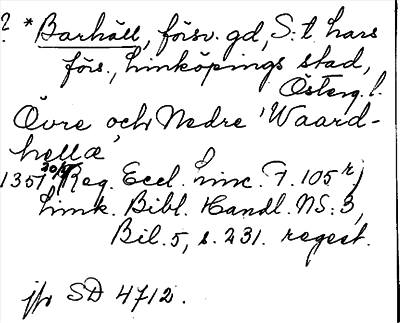 ? *Barhäll, försv. gd, S:t Lars
förs., Linköpings stad,
Österg. l.
Övre och Nedre 'Waard-
hellæ'
1351 20/9 (Reg. Eccl. Linc. F. 105 r)
Link. Bibl. Handl. NS: 3,
Bil. 5, s. 231. regest.
jfr SD 4712.